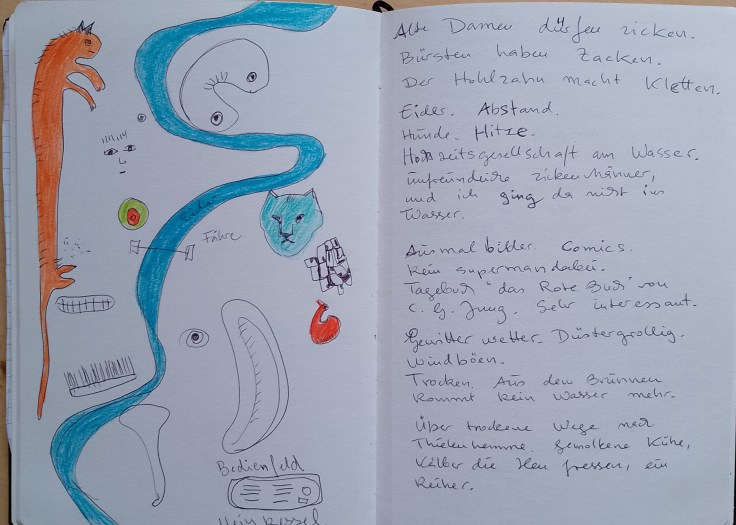 Eider
Fähre
Bedienfeld
Heizkessel
Alte Damen dürfen zicken.
Bürsten haben Zacken.
Der Hohlzahn macht Kletten.
Eider. Abstand.
Hunde. Hitze.
Hochzeitsgesellschaft am Wasser.
unfreundliche
und ich ging da nicht ins
Wasser.
Ausmalbilder. Comics.
Kein Superman dabei.
Tagebuch "das Rote Buch" von
C. G. Jung. Sehr interessant.
Gewitterwetter. Düstergrollig.
Windböen.
Trocken. Aus dem Brunnen
kommt kein Wasser mehr.
Über trockene Wege nach
Thielenhemme. Gemolkene Kühe,
Kälber die Heu fressen, ein
Reiher.